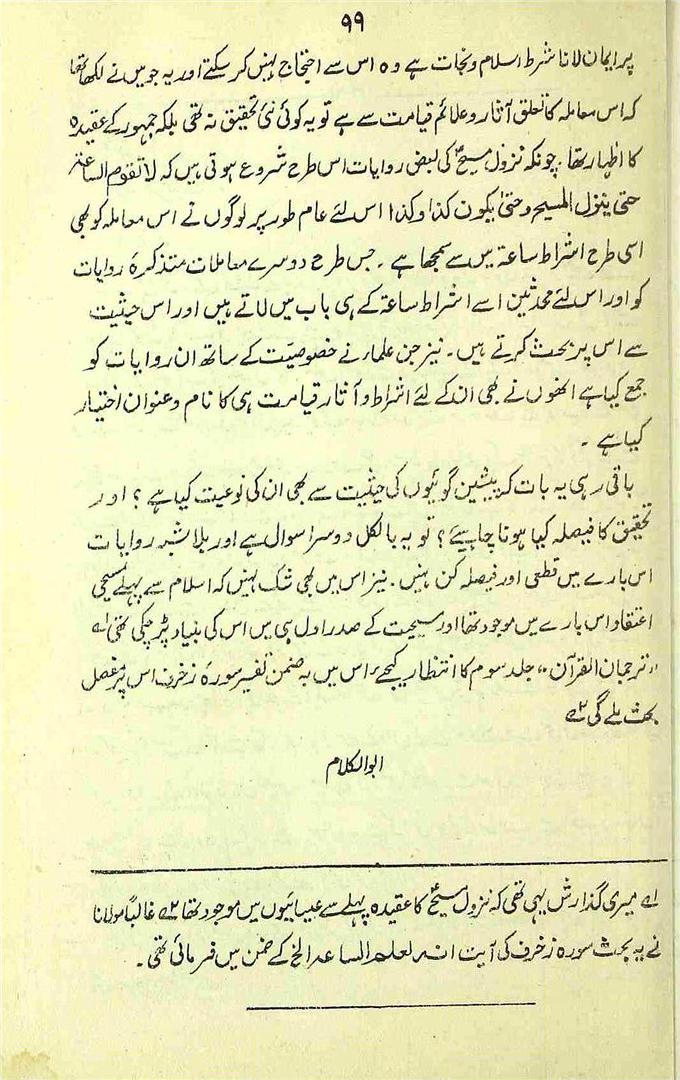 ۹۹
پر ایمان لانا شرط اسلام و نجات ہے وہ اس سے احتجاج نہیں کر سکتے اور یہ جو میں نے لکھا تھا
کہ اس معاملہ کا تعلق آثار و علائم قیامت سے ہے تو یہ کوئی نئی تحقیق نہ تھی بلکہ جمہور کے عقیدہ
کا اظہار تھا۔ چونکہ نزول مسیحؑ کی بعض روایات اس طرح شروع ہوتی ہیں کہ لا تقوم الساعۃ
حتی ینزل المسیح وحتیٰ یکون کذا وکذا اس لئے عام طور پر لوگوں نے اس معاملہ کو بھی
اسی طرح اشراط ساعۃ میں سے سمجھا ہے۔ جس طرح دوسرے معاملات متذکرۂ روایات
کو اور اس لئے محدثین اسے اشراط ساعۃ کے ہی باب میں لاتے ہیں اور اس حیثیت
سے اس پر بحث کرتے ہیں۔ نیز جن علماء نے خصوصیّت کے ساتھ ان روایات کو
جمع کیا ہے انھوں نے بھی ان کے لئے اشراط و آثار قیامت ہی کا نام و عنوان اختیار
کیا ہے۔
باقی رہی یہ بات کہ پیشین گوئیوں کی حیثیت سے بھی ان کی نوعیت کیا ہے؟ اور
تحقیق کا فیصلہ کیا ہونا چاہیئے؟ تو یہ بالکل دوسرا سوال ہے اور بلا شبہ روایات
اس بارے میں قطعی اور فیصلہ کن نہیں۔ نیز اس میں بھی شک نہیں کہ اسلام سے پہلے مسیحی
اعتقاد اس بارے میں موجود تھا اور مسیحیت کے صدر اول ہی میں اس کی بنیاد پڑ چکی تھی ۱ے
"ترجمان القرآن"، جلد سوم کا انتظار کیجیے، اس میں بہ ضمن تفسیر سورۂ زخرف اس پر مفصل
بحث ملے گی ۲ے
ابوالکلام
۱ے میری گذارش یہی تھی کہ نزول مسیحؑ کا عقیدہ پہلے سے عیسائیوں میں موجود تھا ۲ے غالباً مولانا
نے یہ بحث سورہ زخرف کی آیت انہ لعلم الساعۃ الخ کے ضمن میں فرمائی تھی۔